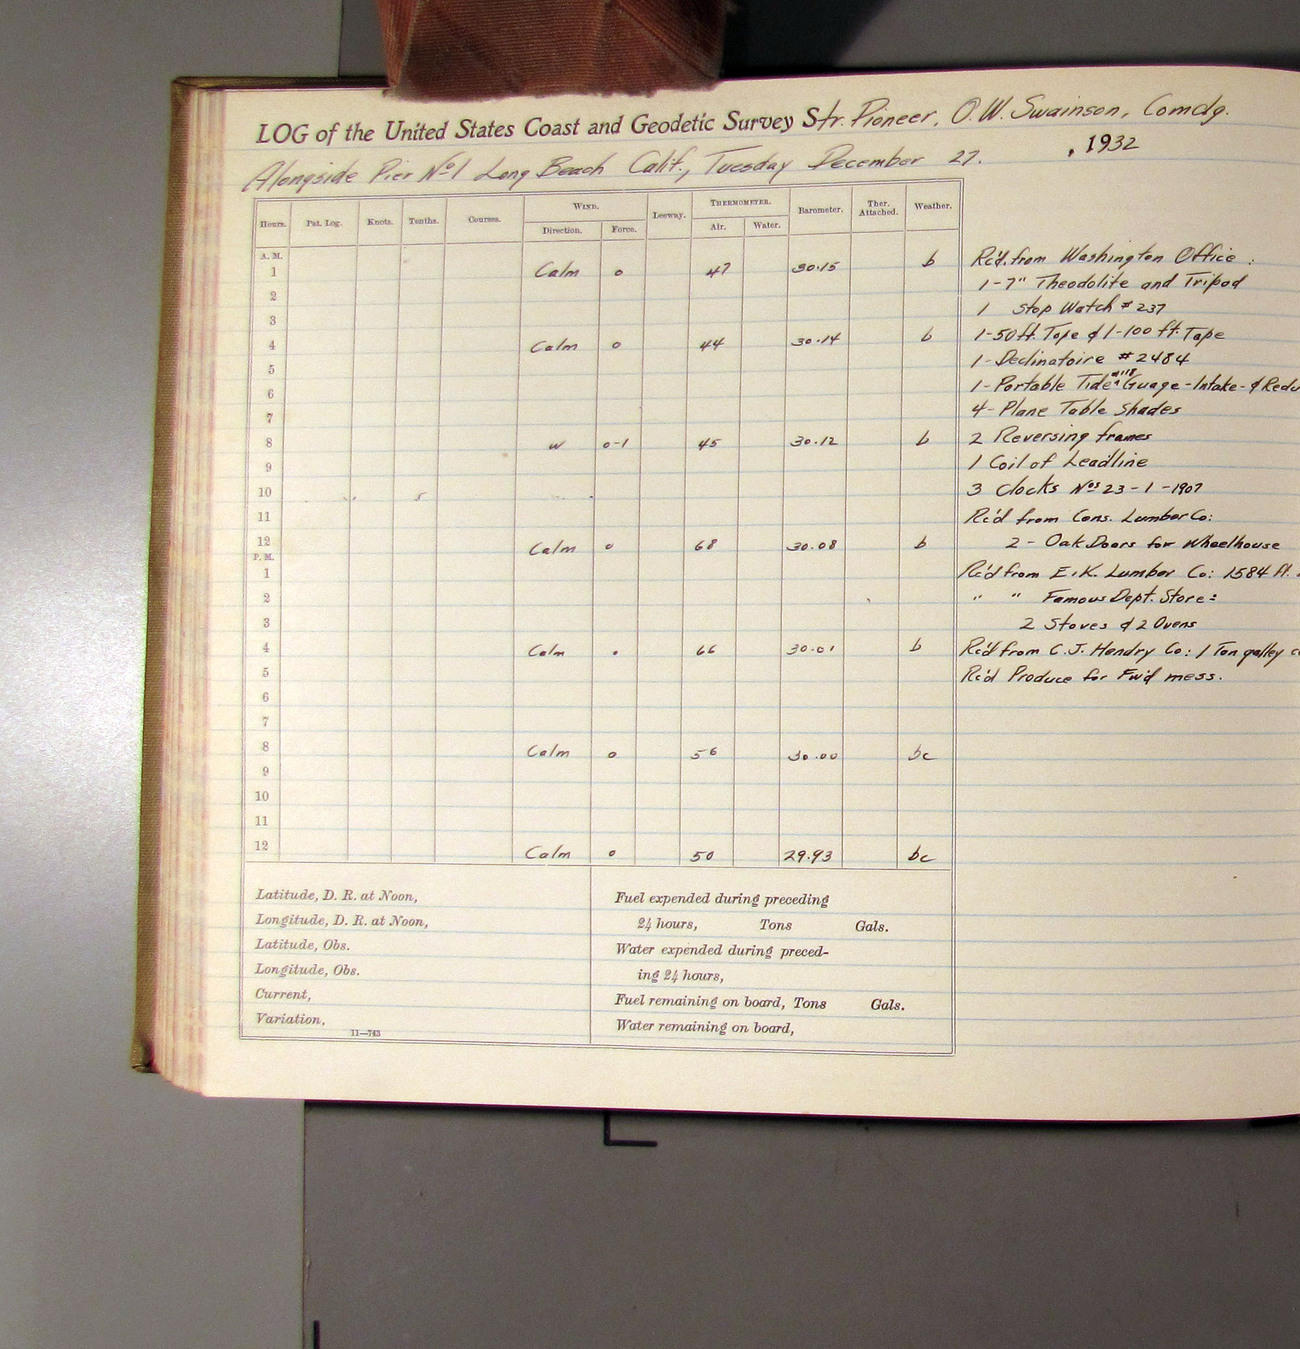 LOG of the United States Coast and Geodetic Survey Str. Pioneer, O.W. Swainson, Comdg.
Alongside Pier No 1 Long Beach Calif., Tuesday December 27. , 1932
Hours. Pat. Log. Knots. Tenths. Courses. WIND. Leeway. THERMOMETER. Barometer. Ther. Attached. Weather.
Direction. Force. Air. Water.
A. M.
1 Calm 0 47 30.15 b
2
3
4 Calm 0 44 30.14 b
5
6
7
8 W 0-1 45 30.12 b
9
10
11
12 Calm 0 68 30.08 b
P. M.
1
2
3
4 Calm 0 66 30.01 b
5
6
7
8 Calm 0 56 30.00 bc
9
10
11
12 Calm 0 50 29.93 bc
Rc'd. from Washington Office :
1-7" Theodolite and Tripod
1 Stop Watch # 237
1-50 ft. Tape & 1-100 ft. Tape
1- Declinatoire # 2484
1- Portable Tide #118 Guage -Intake- & Redu
4- Plane Table Shades
2 Reversing frames
1 Coil of Leadline
3 Clocks Nos 23-1-1907
Rc'd from Cons. Lumber Co:
2 - Oak Doors for Wheelhouse
Rc'd from E.K. Lumber Co: 1584 ft.
" " Famous Dept. Store:
2 Stoves & 2 Ovens
Rc'd from C.J. Hendry Co: 1 Ton galley
Rc'd Produce for Fw'd mess.
Latitude, D. R. at Noon,
Longitude, D. R. at Noon,
Latitude, Obs.
Longitude, Obs.
Current,
Variation,
11—743
Fuel expended during preceding
24 hours, Tons Gals.
Water expended during preced-
ing 24 hours,
Fuel remaining on board, Tons Gals.
Water remaining on board,